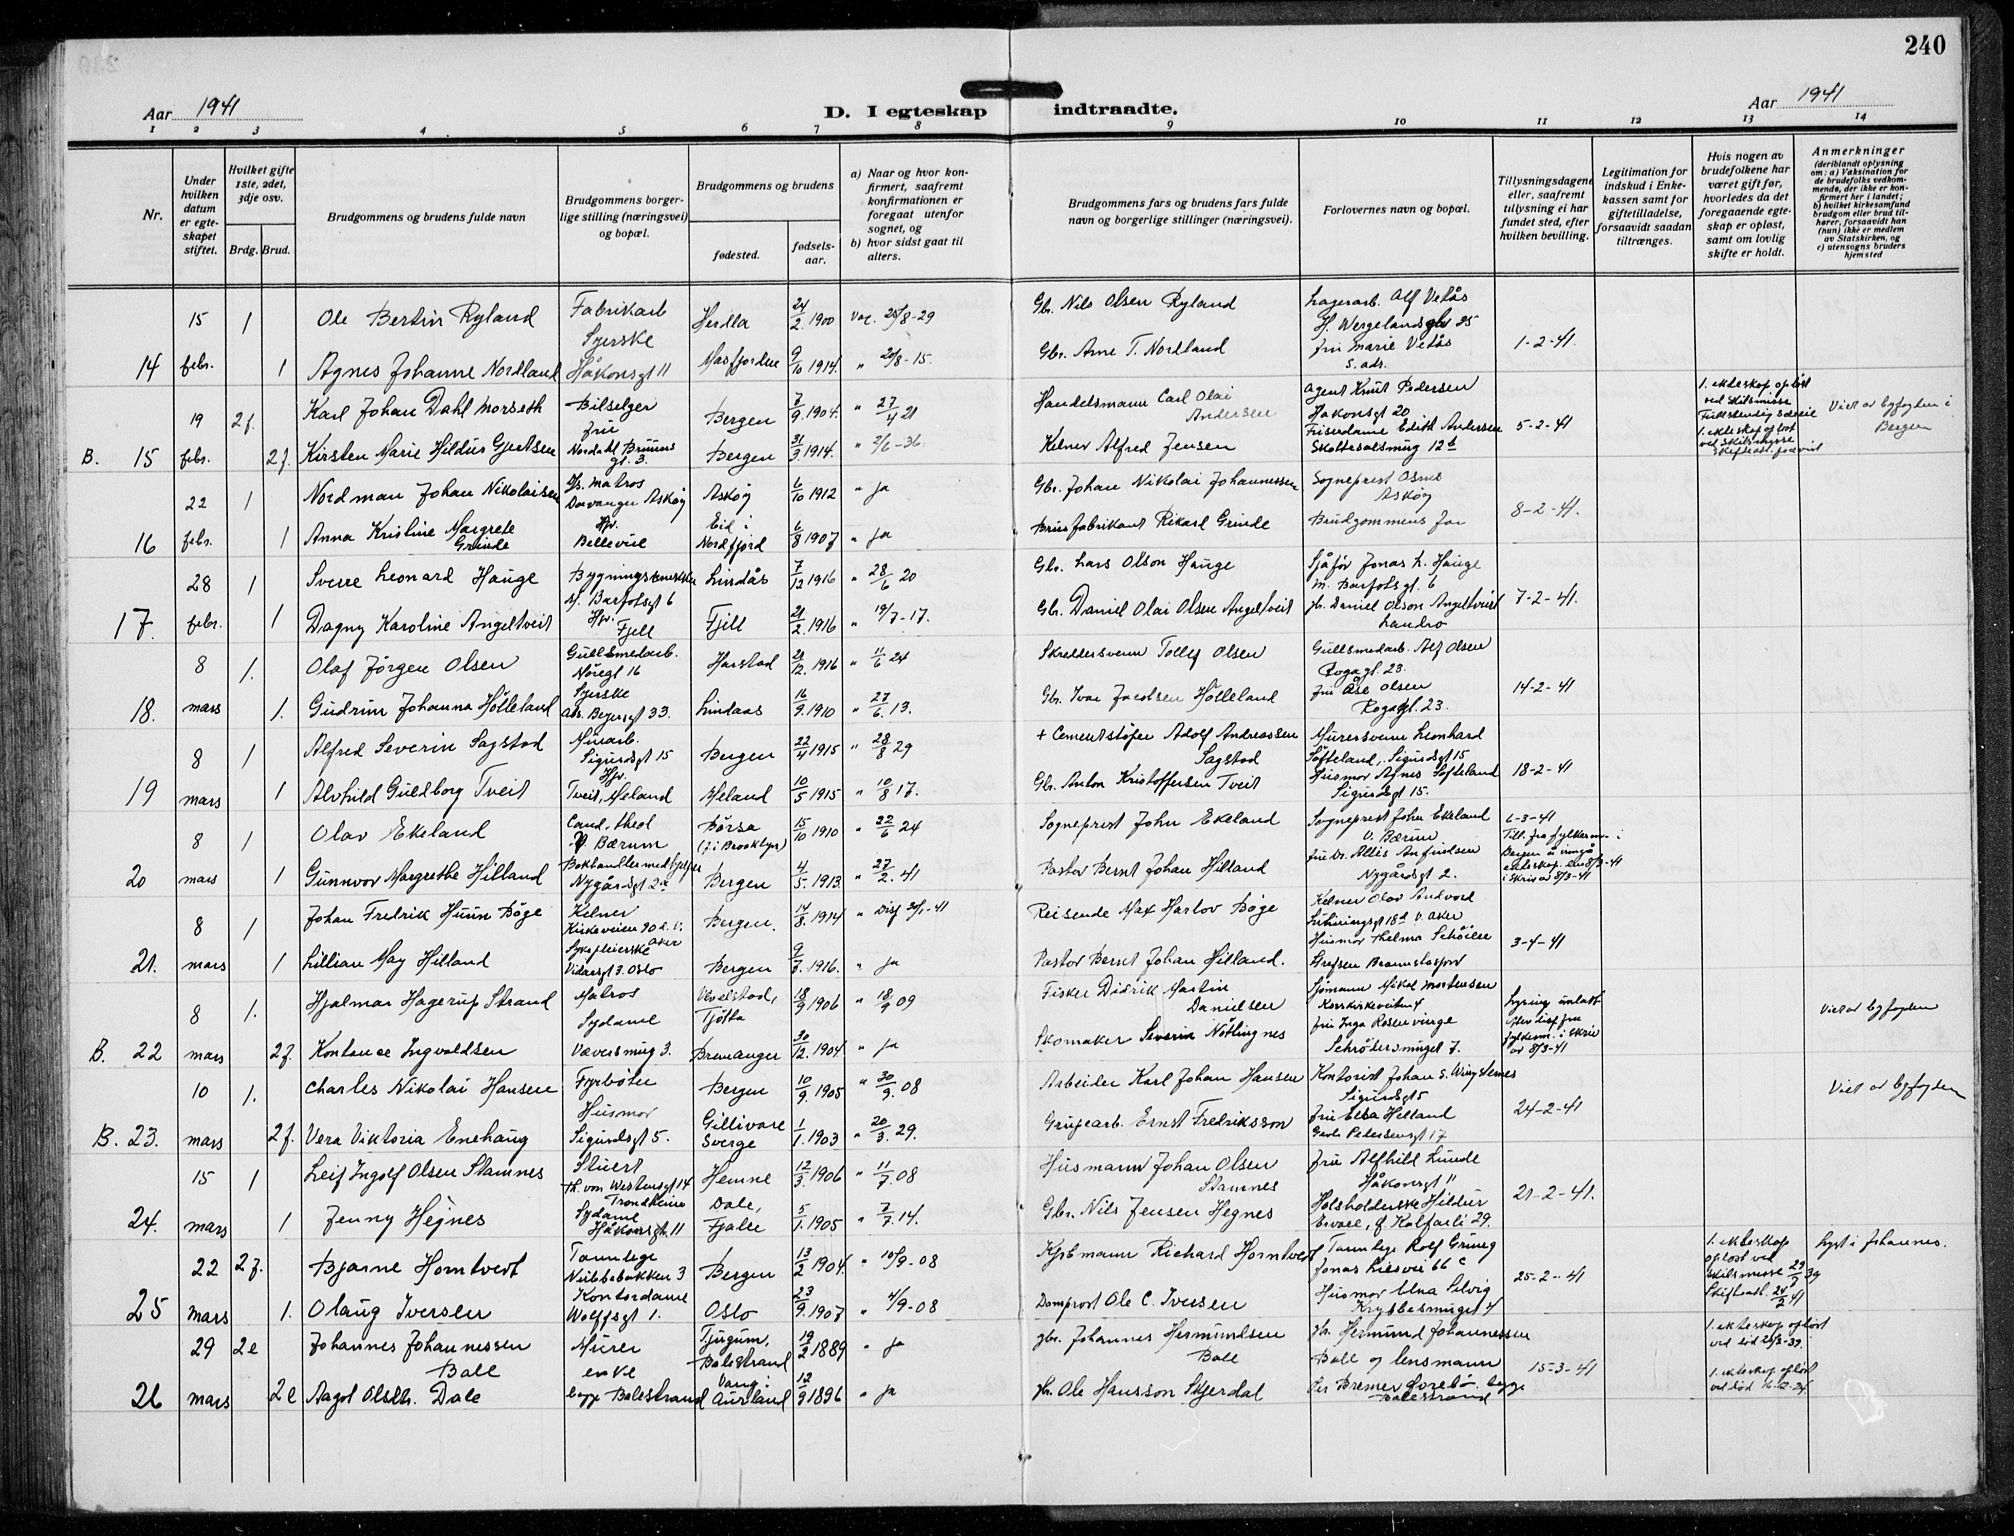 240
Aar 1941
D. I egteskap indtraadte.
Aar 1941
1 2 3 4 5 6 7 8 9 10 11 12 13 14
Nr.
Under hvilken datum er egteskapet stiftet.
Hvilket gifte 1ste, 2det, 3dje osv.
Brdg. Brud.
Brudgommens og brudens fulde navn
Brudgommens borgerlige stilling (næringsvei) og bopæl.
Brudgommens og brudens
fødested.
fødselsaar.
a) Naar og hvor konfirmert, saafremt konfirmationen er foregaat utenfor sognet, og
b) hvor sidst gaat til alters.
Brudgommens fars og brudens fars fulde navn og borgerlige stillinger (næringsvei).
Forlovernes navn og bopæl.
Tillysningsdagene eller, saafremt tillysning ei har fundet sted, efter hvilken bevilling.
Legitimation for indskud i Enkekassen samt for giftetilladelse, forsaavidt saadan tiltrænges.
Hvis nogen av brudefolkene har været gift før, hvorledes da det foregaaende egteskap er opløst, samt om lovlig skifte er holdt.
Anmerkninger (deriblandt oplysning om: a) Vaksination for de brudefolks vedkommende, der ikke er konfirmert her i landet; b) hvilket kirkesamfund brudgom eller brud tilhører, forsaavidt han (hun) ikke er medlem av Statskirken, og c) utensogns bruders hjemsted
15 1 Ole Bertin Ryland Fabrikarb Herdla 24/2 1900 Vac. 25/8-29 Gbr. Nils Olsen Ryland Lagerarb. Alf Vetås
Syerske H. Wergelands gt 25
14 febr. 1 Agnes Johanne Nordland Håkonsgt 11 Masfjorden 9/10 1914. " 20/8-15 Gbr. Arne T. Nordland fru Marie Vetås 1-2-41.
s. adr.
19 2f. Karl Johan Dahl Morseth Bilselger Bergen 7/9 1904. " 27/4 21 Handelsmann Carl Olai Andersen Agent Knut Pedersen
Håkonsgt 20
1. ekteskap opløst ved skilsmisse
Viet av byfogden i Bergen
B. 15 febr. 2f. Kirsten Marie Hildur Gjertsen frue Nordahl Bruuns gt. 3. Bergen 31/3 1914. " 2/6-36 Kelner Alfred Jensen Friserdame Edith Andersen 5-2-41
1. ekteskap opløst ved skilsmisse
22 1 Nordman Johan Nikolaisen matros Askøy Askøy 6/10 1912 " ja Gbr. Johan Nikolai Johannessen Sogneprest Osnes
Askøy
16 febr. 1 Anna Kristine Margrete Grinde Hpr. Bellevue Eid i Nordfjord 6/8 1907 " ja Brusfabrikant Rikard Grinde Brudgommens far 8-2-41.
28 1 Sverre Leonard Hauge Lindås 7/12 1916 " 28/6 20 Gbr. Lars Olson Hauge Sjåfør Jonas L. Hauge
M. Barfotsgt. 6
17. febr. 1 Dagny Karoline Angeltveit Hpr. Fjell Fjell 21/2 1916 " 19/7-17. Gbr. Daniel Olai Olsen Angeltveit gbr. Daniel Olson Angeltveit 7-2-41.
Landrø
8 1. Olaf Jørgen Olsen Gullsmedarb. Nøregt 16 Harstad 21/12 1916 " 11/6 24 Skreddersvenn Tollef Olsen Gullsmedarb. Alf Olsen
Rogagt. 23.
18. mars 1. Gudrun Johanna Hølleland Syerske Lindaas 16/9 1910 " 27/6.13. Gbr. Ivar Jacobsen Hølleland fru Åse Olsen 14-2-41
Rogagt. 23.
8 1 Alfred Severin Sagstad Murarb. Sigurdsgt 15 Bergen 22/4 1915 " 28/8 29 + Cementstøper Adolf Andreassen Sagstad Murersvenn Leonhard
Søfteland, Sigurdsgt 15
19 mars 1 Alvhild Guldborg Tveit Hpr. Tveit, Meland Meland 10/5 1915 " 10/8 17. Gbr. Anton Kristoffersen Tveit Husmor Agnes Søfteland 18-2-41
Sigurdsgt 15.
8 1 Olav Ekeland Cand. theol V. Bærum Børsa (f. i Brooklyn) 15/10 1910 " 22/6 24 Sogneprest John Ekeland Sogneprest John Ekeland
V. Bærum
6-3-41
20 mars 1 Gunnvor Margrethe Hilland Nygårdsgt 2 Bergen 4/5. 1913. " 27/2.41 Pastor Bernt Johan Hilland fru Dr. Allis Anfindsen
Nygårdsgt 2. i skriv av 8/3-41
8 1 Johan Fredrik Huun Bøge Kelner Kirkeveien 90 V. Aker Bergen. 14/8. 1914 " Disp 30/1-41 Reisende Max Harlov Bøge Kelner Olav Andvord
V. Aker
21. mars 1 Lillian May Hilland Sykepleierske Vidarsgt 3. Oslo Bergen 9/7. 1916. " ja Pastor Bernt Johan Hilland. Husmor Thelma Schøien 3-4-41
Grefsen Brannstasjon
8 1. Hjalmar Hagerup Strand Matros Tjøtta 18/9 1906 " 18/9 09 Fisker Didrik Martin Danielsen Sjømann Mikal Mortensen
Korskirkeveiten 4
Viet av byfogden
B. 22 mars 2f. Kontance Ingvaldsen Sydame Væversmug 3. Bremanger 30/12. 1904. " ja Skomaker Severin Nøtlingnes fru Inga Rosenvinge
Schrødersmuget 7. av 8/3-41
10 1. Charles Nikolai Hansen Fyrbøter Bergen 10/9. 1905 " 30/9.08 Arbeider Karl Johan Hansen Kontorist Johan S. Wingsternes
Sigurdsgt 5
Viet av byfogden
B. 23. mars 2f. Vera Viktoria Enehaug Husmor Sigurdsgt 5. Gillivare Sverge 1/1. 1903 " 20/3.29. Grubearb. Ernst Fredriksson fru Elsa Helland 24-2-41
Gerh. Petersensgt 17
15 1 Leif Ingolf Olsen Stamnes Stuert Th. von Westensgt 14 Trondheim Hemne 12/3 1906 " 11/7 08 Husmann Johan Olsen Stamnes fru Alfhild Lunde
Håkonsgt 11
24. mars 1 Jenny Hegnes Sydame Håkonsgt. 11 Dale, Fjaler 5/1. 1905 " 7/7.14. Gbr. Nils Jensen Hegnes Holsholderske Hildur 21-2-41.
Kalfarli 29.
22 2f. Bjarne Horntvedt Tannlege Nubbebakken 3 Bergen 13/2 1904. " 10/9-08 Kjøbmann Richard Horntvedt Tannlege Rolf Grung
Jonas Liesvei 66 c
1. ekteskap opløst ved skilsmisse 29/3 39
Skifteatt. 24/2 41
Lyst i Johannes.
25 mars 1. Olaug Iversen Kontordame Wolffsgt 1. Oslo 23/9. 1907 " 4/9-08 Domprost Ole C. Iversen Husmor Una Selvig 25-2-41
Krybbesmuget 4
29 2e Johannes Johannessen Bale Murer Tjugum, Balestrand 19/2 1889 " ja gbr. Johannes Hermundsen Bale gbr. Hermund Johannessen
Bale og lensmann
1. ekteskap opløst ved død
15-3-41
26 mars 2e Aagot Olsdtr. Dale enke begge Balestrand Vang i Aurland 12/9 1896 " ja gbr. Ole Hansson Skjerdal Per Bremer Ørebø. begge
Balestrand
1. ekteskap opløst ved død 16-2-24